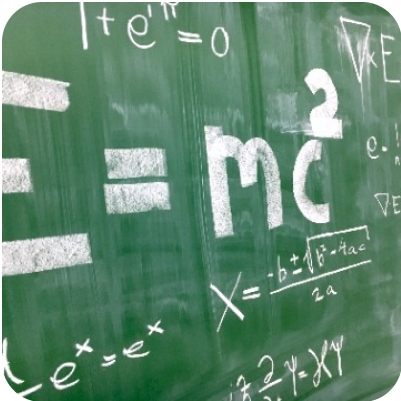 1 + e^iπ = 0
∇ x E
E = mc²
e.
∇E
x = -b ± √b² - 4ac / 2a
e^x = e^x